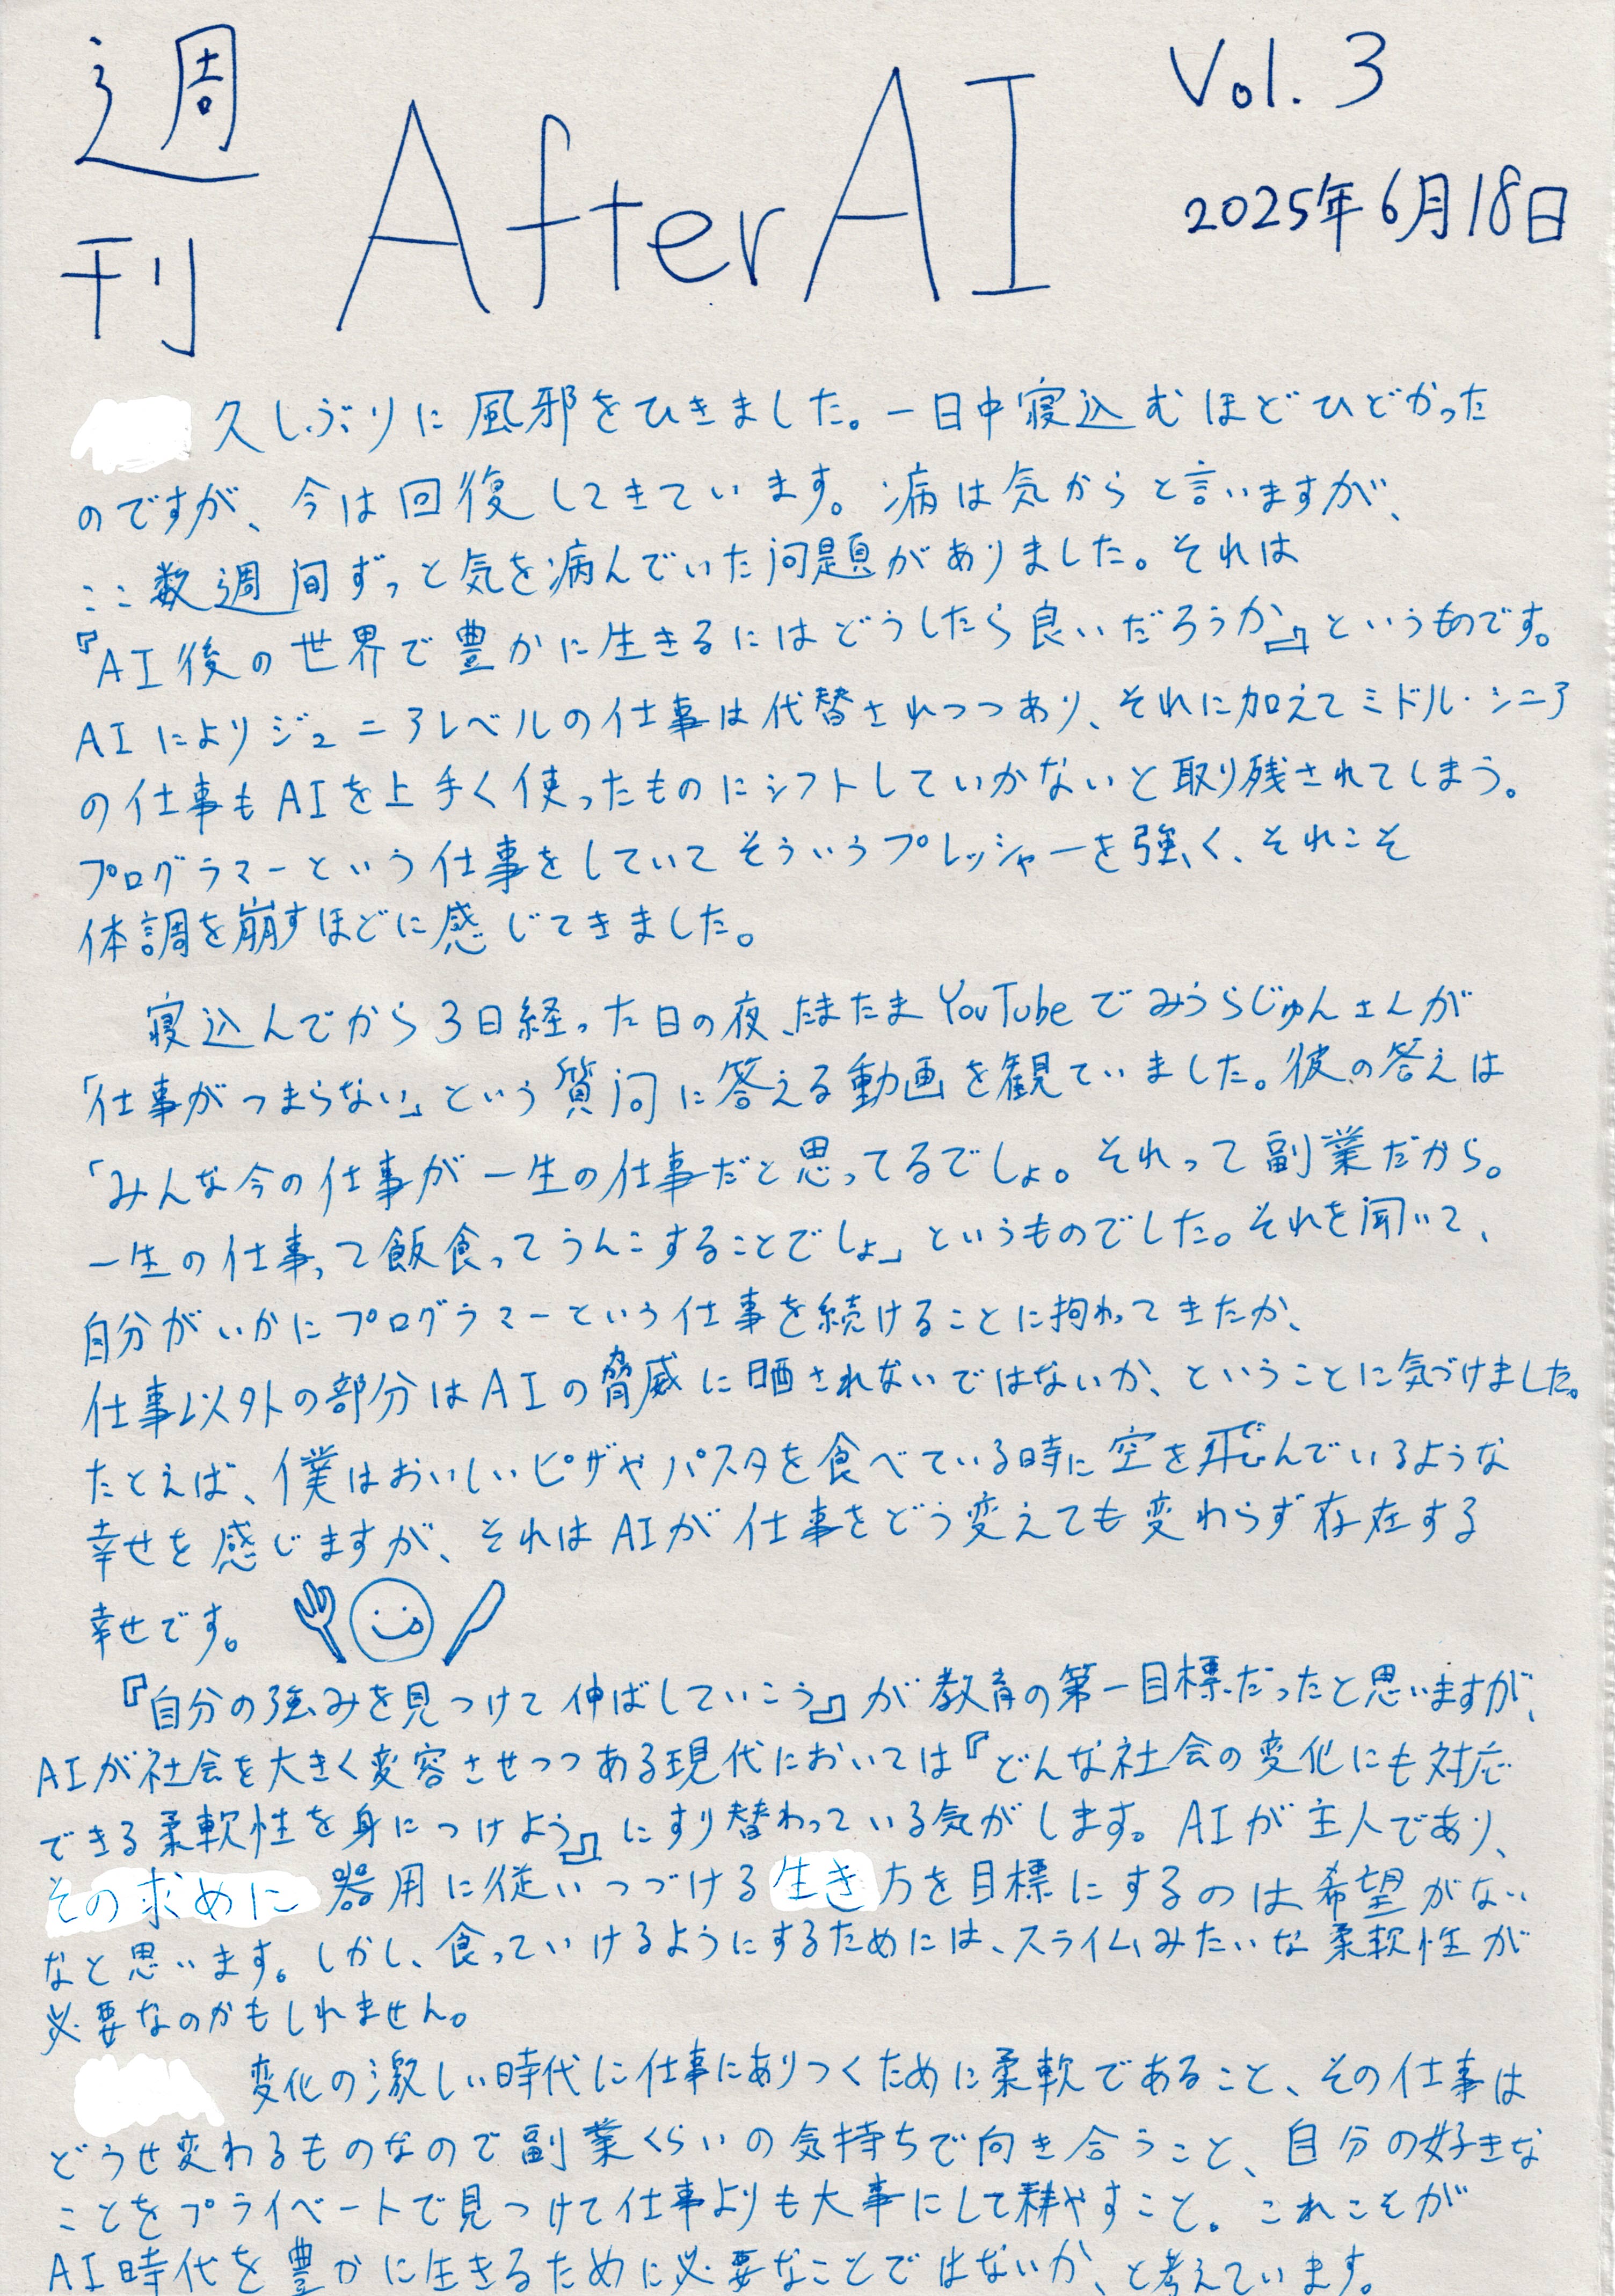 週刊 AfterAI Vol. 3
2025年6月18日
久しぶりに風邪をひきました。一日中寝込むほどひどかった
のですが、今は回復してきています。病は気からと言いますが、
ここ数週間ずっと気を病んでいた問題がありました。それは
『AI後の世界で豊かに生きるにはどうしたら良いだろうか』というものです。
AIによりジュニアレベルの仕事は代替されつつあり、それに加えてミドル・シニア
の仕事もAIを上手く使ったものにシフトしていかないと取り残されてしまう。
プログラマーという仕事をしていてそういうプレッシャーを強く、それこそ
体調を崩すほどに感じてきました。
寝込んでから3日経った日の夜、たまたまYouTubeでみうらじゅんさんが
「仕事がつまらない」という質問に答える動画を観ていました。彼の答えは
「みんな今の仕事が一生の仕事だと思ってるでしょ。それって副業だから。
一生の仕事って飯食ってうんこすることでしょ」というものでした。それを聞いて、
自分がいかにプログラマーという仕事を続けることに拘わってきたか、
仕事以外の部分はAIの脅威に晒されないではないか、ということに気づけました。
たとえば、僕はおいしいピザやパスタを食べている時に空を飛んでいるような
幸せを感じますが、それはAIが仕事をどう変えても変わらず存在する
幸せです。
『自分の強みを見つけて伸ばしていこう』が教育の第一目標だったと思いますが、
AIが社会を大きく変容させつつある現代においては『どんな社会の変化にも対応
できる柔軟性を身につけよう』にすり替わっている気がします。AIが主人であり、
その求めに器用に従いつづける生き方を目標にするのは希望がない
なと思います。しかし、食っていけるようにするためには、スライムみたいな柔軟性が
必要なのかもしれません。
変化の激しい時代に仕事にありつくために柔軟であること、その仕事は
どうせ変わるものなので副業くらいの気持ちで向き合うこと、自分の好きな
ことをプライベートで見つけて仕事よりも大事にして耕やすこと。これこそが
AI時代を豊かに生きるために必要なことではないか、と考えています。